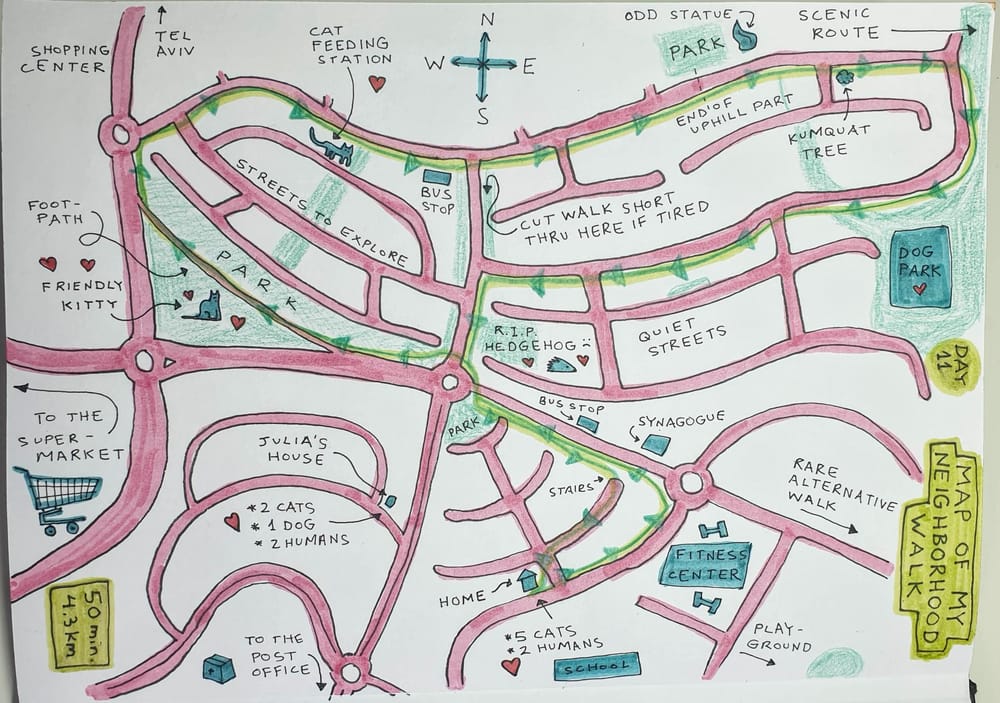 SHOPPING
CENTER
TEL
AVIV
CAT
FEEDING
STATION
N
W
E
S
ODD STATUE
PARK
SCENIC
ROUTE
END OF
UPHILL PART
KUMQUAT
TREE
BUS
STOP
CUT WALK SHORT
THRU HERE IF TIRED
STREETS TO EXPLORE
FOOT-
PATH
FRIENDLY
KITTY
PARK
DOG
PARK
R.I.P.
HEDGEHOG
QUIET
STREETS
DAY
11
TO THE
SUPER-
MARKET
BUS STOP
SYNAGOGUE
PARK
JULIA'S
HOUSE
* 2 CATS
* 1 DOG
* 2 HUMANS
STAIRS
RARE
ALTERNATIVE
WALK
MAP OF MY
NEIGHBORHOOD
WALK
FITNESS
CENTER
HOME
50 min.
4.3 KM
* 5 CATS
* 2 HUMANS
TO THE
POST
OFFICE
SCHOOL
PLAY-
GROUND